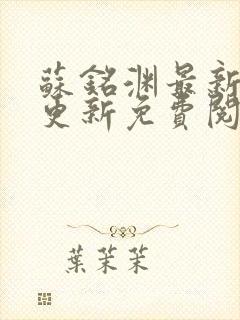 蘇銘淵最新
更新免費閱
葉茉茉